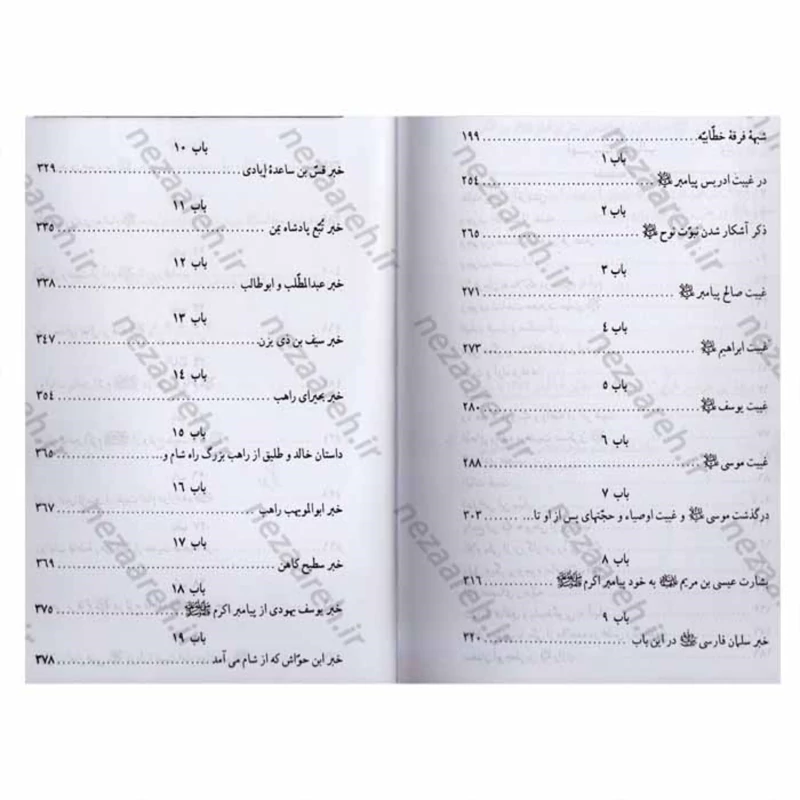 شبهۀ فرقۀ خطّابیّه ........ ۱۹۹
باب ۱
در غیبت ادریس پیامبر ﷷ ........ ۲۵۴
باب ۲
ذکر آشکار شدن نبوّت نوح ........ ۲۶۵
باب ۳
غیبت صالح پیامبر ........ ۲۷۱
باب ۴
غیبت ابراهیم ........ ۲۷۳
باب ۵
غیبت یوسف ........ ۲۸۰
باب ۶
غیبت موسی ........ ۲۸۸
باب ۷
درگذشت موسی و غیبت اوصیاء و حجّتهای پس از او تا... ........ ۳۰۳
باب ۸
بشارت عیسی بن مریم به خود پیامبر اکرم ﷺ ........ ۳۱۶
باب ۹
خبر سلمان فارسی در این باب ........ ۳۲۰
باب ۱۰
خبر قسّ بن ساعدۀ إیادی ........ ۳۲۹
باب ۱۱
خبر تُبّع پادشاه یمن ........ ۳۳۵
باب ۱۲
خبر عبدالمطّلب و ابوطالب ........ ۳۳۸
باب ۱۳
خبر سیف بن ذی یزن ........ ۳۴۷
باب ۱۴
خبر بحیرای راهب ........ ۳۵۴
باب ۱۵
داستان خالد و طلیق از راهب بزرگ راه شام و... ........ ۳۶۵
باب ۱۶
خبر ابوالمویهب راهب ........ ۳۶۷
باب ۱۷
خبر سطیح کاهن ........ ۳۶۹
باب ۱۸
خبر یوسف یهودی از پیامبر اکرم ﷺ ........ ۳۷۵
باب ۱۹
خبر ابن حوّاش که از شام می آمد ........ ۳۷۸
nezaareh.ir